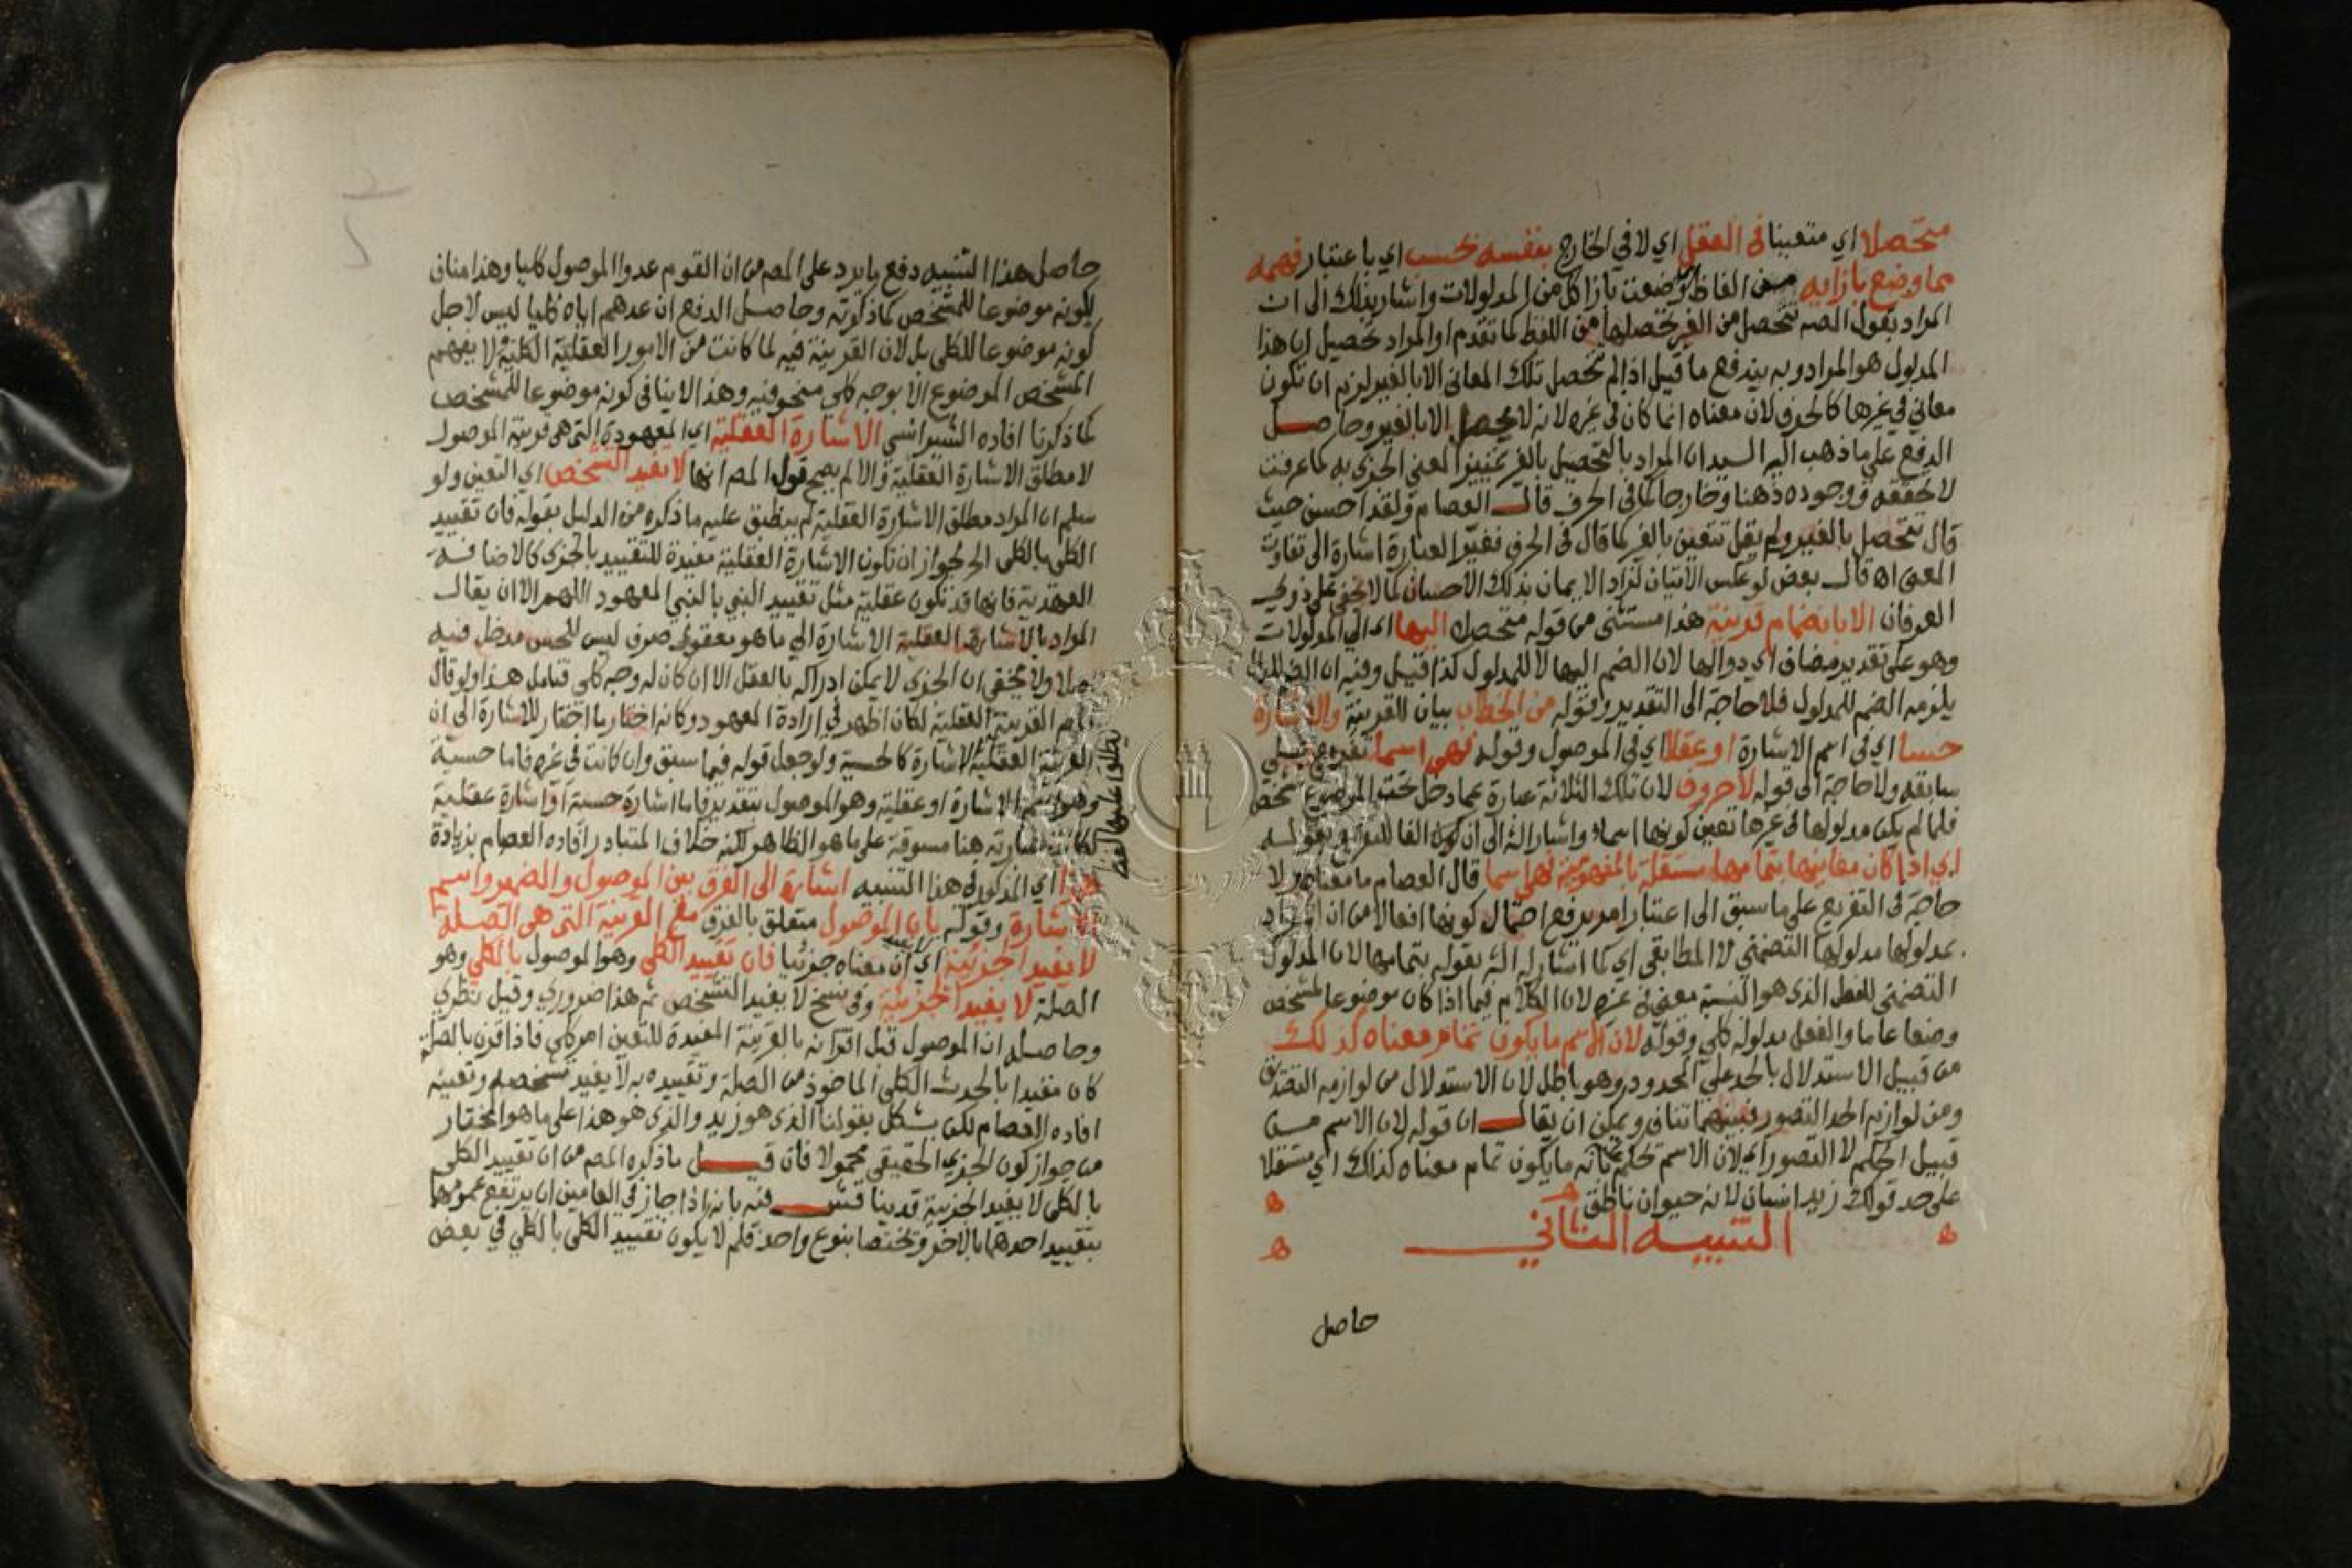 متحصلا اي متعينا في العقل اي لا في الخارج بنفسه بحسب اي باعتبار فهمه
مما وضع بازايه من الفاظ وضعت بازا كل من المدلولات واشار بذلك الى ان
المراد بقول المص تتحصل من الغير تحصلها من اللفظ كما تقدم او المراد تحصيل ان هذا
المدلول هو المراد وبه يندفع ما قيل اذا لم تحصل تلك المعاني الا بالغير لزم ان تكون
معاني في غيرها كالحرف لان معناه انما كان في غيره لانه لا يحصل الا بالغير وحاصل
الدفع على ما ذهب اليه السيد ان المراد بالتحصيل بالغير تمييز المعنى الجزي به كما عرفت
لا تحققه ووجوده ذهنا وخارجا كما في الحرف قال العصام ولقد احسن حيث
قال تتحصل بالغير ولم يقل تتعين بالغير كما قال في الحرف فغير العبارة اشارة الى تفاوت
المعنى اه قال بعض لو عكس الاتيان لزاد الايمان بذلك الاحسان كما لا يخفى على ذوي
العرفان الا بانضمام قرينة هذا مستثنى من قوله متحصل اليها اي الى المدلولات
وهو على تقدير مضاف اي دوالها لان الضم اليها لا للمدلول كذا قيل وفيه ان الضم للدال
يلزمه الضم للمدلول فلا حاجة الى التقدير وقوله من الخطاب بيان للقرينة والاشارة
حسا اي في اسم الاشارة او عقلا اي في الموصول وقوله فهي اسما تفريع على
سابقه ولا حاجة الى قوله لا حروف لان تلك الثلاثة عبارة عما دخل تحت الموضوع لمشخص
فلما لم يكن مدلولها في غيرها تعين كونها اسماء واشار الش الى ان كون الفا للتفريع بقوله
اي اذا كان معانيها بتمامها مستقلة بالمفهومية فهي اسما قال العصام ما معناه ولا
حاجة في التفريع على ما سبق الى اعتبار امر يدفع احتمال كونها افعالا من ان المراد
بمدلولها مدلولها التضمني لا المطابقي اي كما اشار له الش بقوله بتمامها لان المدلول
التضمني للفعل الذي هو النسبة معنى في غيره لان الكلام فيما اذا كان موضوعا لمشخص
وضعا عاما والفعل مدلوله كلي وقوله لان الاسم ما يكون تمام معناه كذلك
من قبيل الاستدلال بالحد على المحدود وهو باطل لان الاستدلال من لوازمه التصديق
ومن لوازم الحد التصور فبينهما تناف ويمكن ان يقال ان قوله لان الاسم من
قبيل الحكم لا التصور اي لان الاسم نحكم بانه ما يكون تمام معناه كذلك اي مستقلا
على حد قولك زيد انسان لانه حيوان ناطق
التنبيه الثاني
حاصل
حاصل هذا التنبيه دفع ما يرد على المص من ان القوم عدوا الموصول كليا وهذا مناف
لكونه موضوعا للمشخص كما ذكرته وحاصل الدفع ان عدهم اياه كليا ليس لاجل
كونه موضوعا للكلي بل لان القرينة فيه لما كانت من الامور العقلية الكلية لا يفهم
المشخص الموضوع الا بوجه كلي منحو فيه وهذا لا ينافي كونه موضوعا للمشخص
كما ذكرنا افاده الشيرانسي الاشارة العقلية اي المعهودة التي هي قرينة الموصول
لا مطلق الاشارة العقلية والا لم يصح قول المص انها لا تفيد التشخص اي التعين ولو
سلم ان المراد مطلق الاشارة العقلية لم ينطبق عليه ما ذكره من الدليل بقوله فان تقييد
الكلي بالكلي الخ لجواز ان تكون الاشارة العقلية مفيدة للتقييد بالجزي كالاضافة
العهدية فانها قد تكون عقلية مثل تقييد النبي بالنبي المعهود اللهم الا ان يقال
المراد بالاشارة العقلية الاشارة الى ما هو معقول صرف ليس للحس مدخل فيه
اصلا ولا يخفى ان الجزي لا يمكن ادراكه بالعقل الا ان كان له وجه كلي فتامل هذا ولو قال
المص القرينة العقلية لكان اظهر في ارادة المعهود وكانه اختار ما اختار للاشارة الى ان
القرينة العقلية الاشارة كالحسية ولو جعل قوله فيما سبق وان كانت في غيره فاما حسية
وهو اسم الاشارة او عقلية وهو الموصول بتقدير فاما اشارة حسية او اشارة عقلية
لكانت عبارته هنا مسوقة على ما هو الظاهر لكنه خلاف المتبادر افاده العصام بزيادة
هذا اي المذكور في هذا التنبيه اشارة الى الفرق بين الموصول والضمير واسم
الاشارة وقوله بان الموصول متعلق بالفرق مع القرينة التي هي الصلة
لا يفيد الجزئية اي ان معناه جزئيا فان تقييد الكلي وهو الموصول بالكلي وهو
الصلة لا يفيد الجزئية وفي نسخ لا يفيد التشخص ثم هذا ضروري وقيل نظري
وحاصله ان الموصول قبل اقترانه بالقرينة المفيدة للتعين امر كلي فاذا قرن بالصلة
كان مقيدا بالحدث الكلي الماخوذ من الصلة وتقييده به لا يفيد تشخصه وتعينه
افاده العصام لكن يشكل بقولنا الذي هو زيد والذي هو هذا على ما هو المختار
من جواز كون الجزي الحقيقي محمولا فان قيل ما ذكره المص من ان تقييد الكلي
بالكلي لا يفيد الجزئية قد يناقش فيه بانه اذا جاز في العامين ان يرتفع عمومهما
بتقييد احدهما بالاخر ويختصا بنوع واحد فلم لا يكون تقييد الكلي بالكلي في بعض